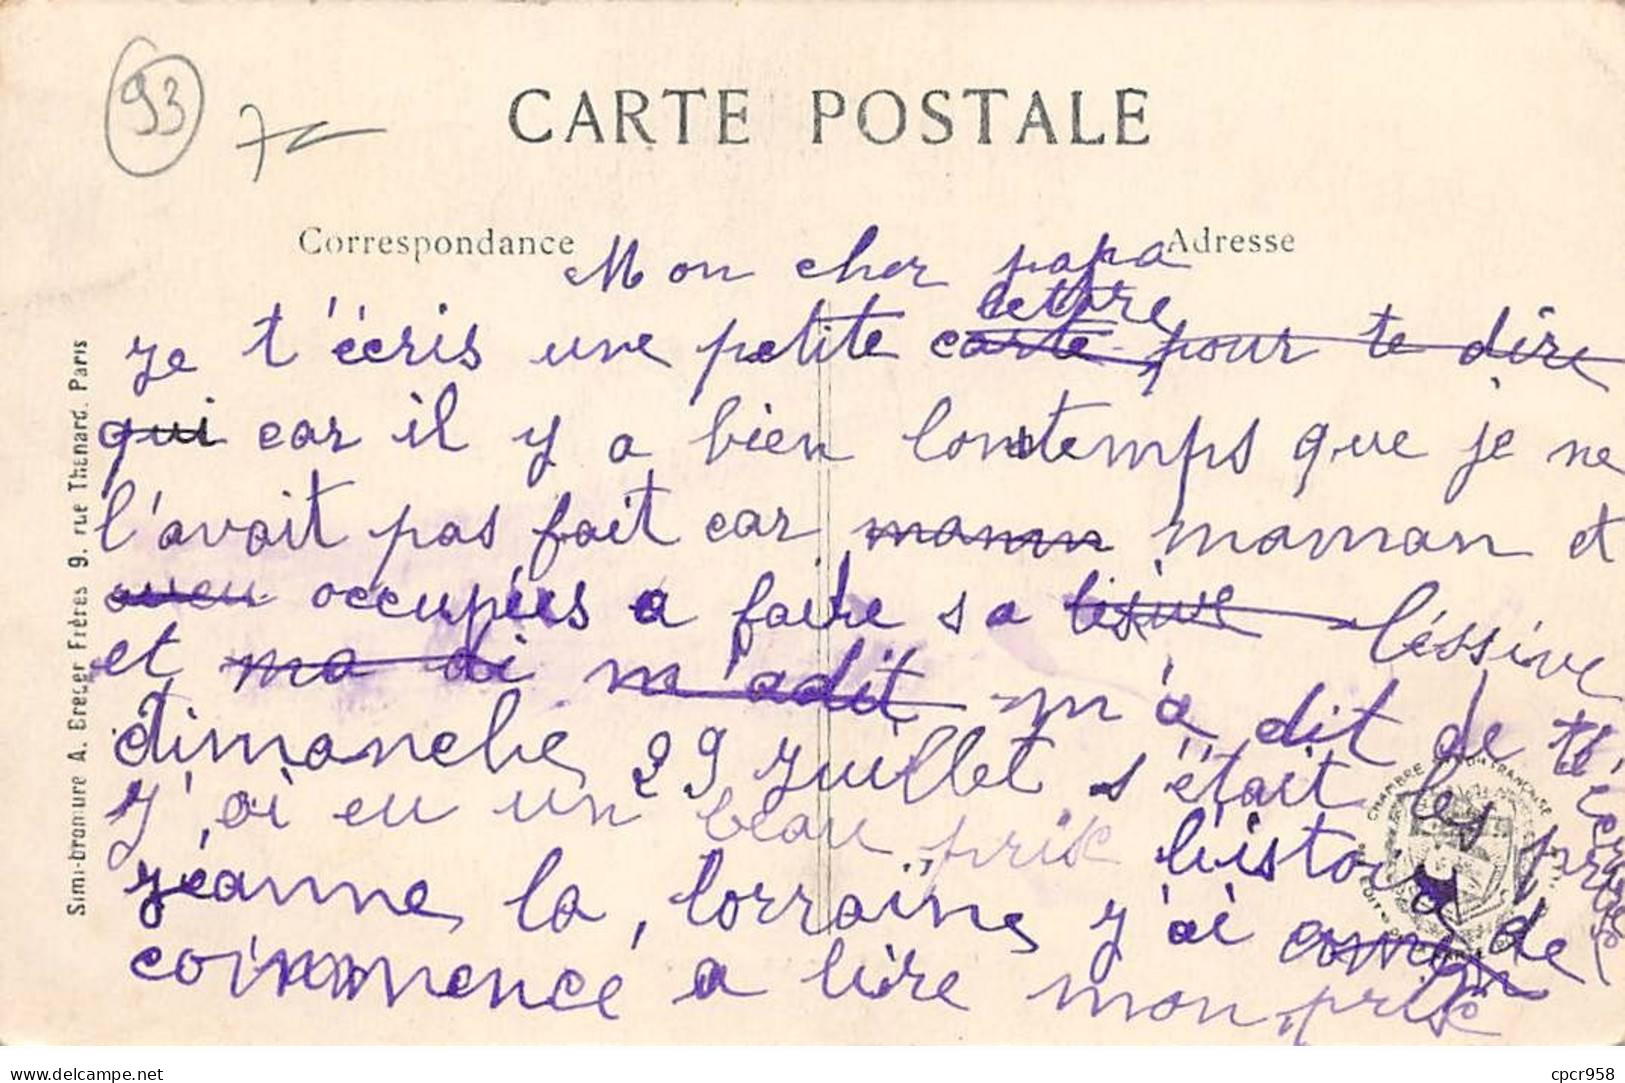 93
CARTE POSTALE
Correspondance
Adresse
Mon cher papa
lettre
je t'écris une petite carte pour te dire
qui car il y a bien lontemps que je ne
l'avait pas fait car maman et
occupées a faire sa lésive léssive
et ma di m'adit m'a dit de té
dimanche 29 juillet s'était les
j'ai eu un beau prix l'histoire
jéanne la lorraine j'ai de
commencé a lire mon prix
Simi-bromure A. Breger Frères 9. rue Thénard. Paris
delcampe.net
cpcr958